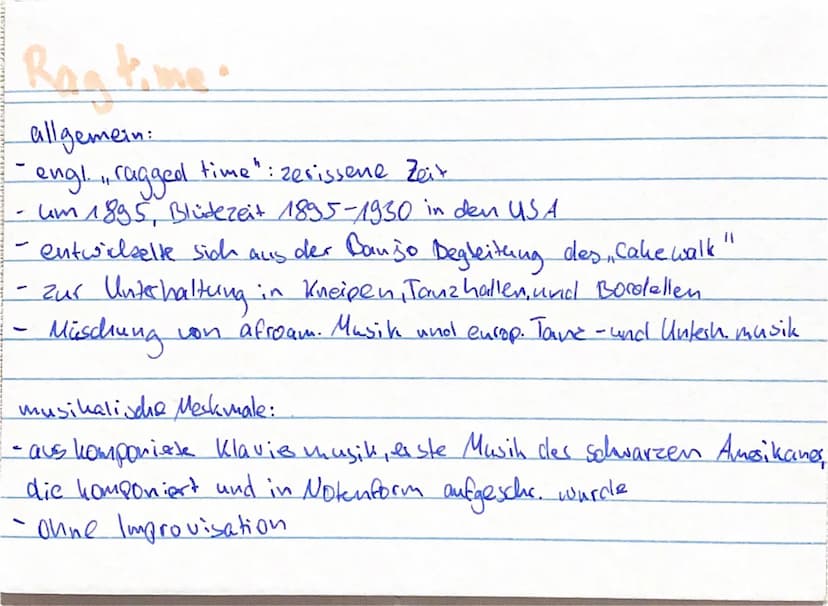 Ragtime.
allgemein:
- engl. „ragged time": zerissene Zeit
- um 1895, Blütezeit 1895-1930 in den USA
- entwickelte sich aus der Banjo Begleitung des „Cakewalk"
- zur Unterhaltung in Kneipen, Tanzhallen, und Bordellen
- Mischung von afroam. Musik und europ. Tanz- und Unterh. musik
musikalische Merkmale:
- auskomponierte Klaviermusik, erste Musik der schwarzen Amerikaner,
die komponiert und in Notenform aufgeschr. wurde
- ohne Improvisation